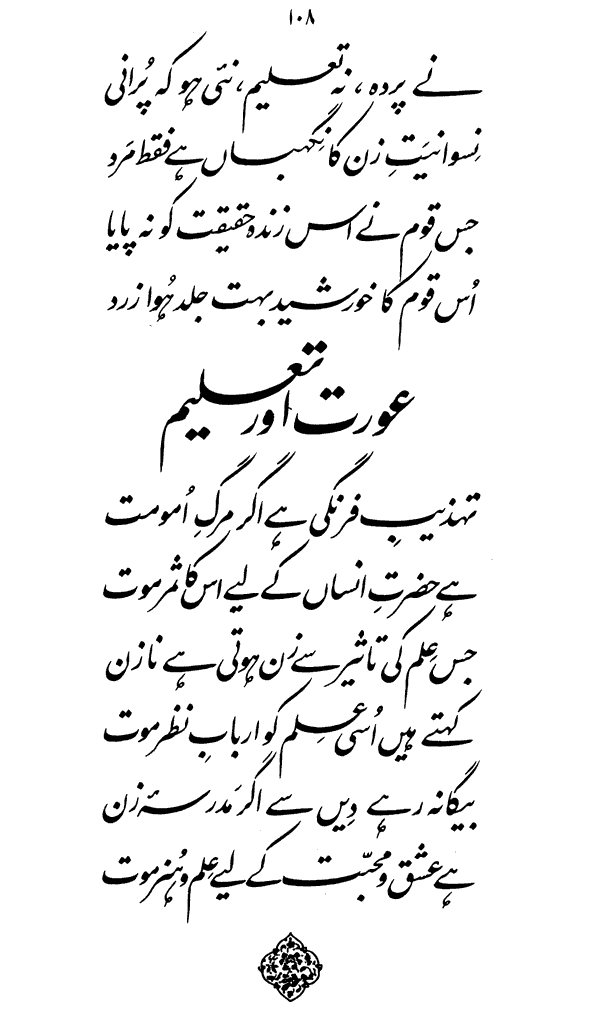 ۱۰۸
نے پردہ، نہ تعلیم، نئی ہو کہ پُرانی
نِسوانیَتِ زن کا نِگہباں ہے فقط مَرد
جس قوم نے اس زندہ حقیقت کو نہ پایا
اُس قوم کا خورشید بہت جلد ہُوا زرد
عورت اور تعلیم
تہذیبِ فرنگی ہے اگر مرگِ اُمومت
ہے حضرتِ انساں کے لیے اس کا ثمر موت
جس عِلم کی تاثیر سے زن ہوتی ہے نازن
کہتے ہیں اُسی عِلم کو اربابِ نظر موت
بیگانہ رہے دِیں سے اگر مَدرسۂ زن
ہے عشق و محبّت کے لیے عِلم و ہُنر موت